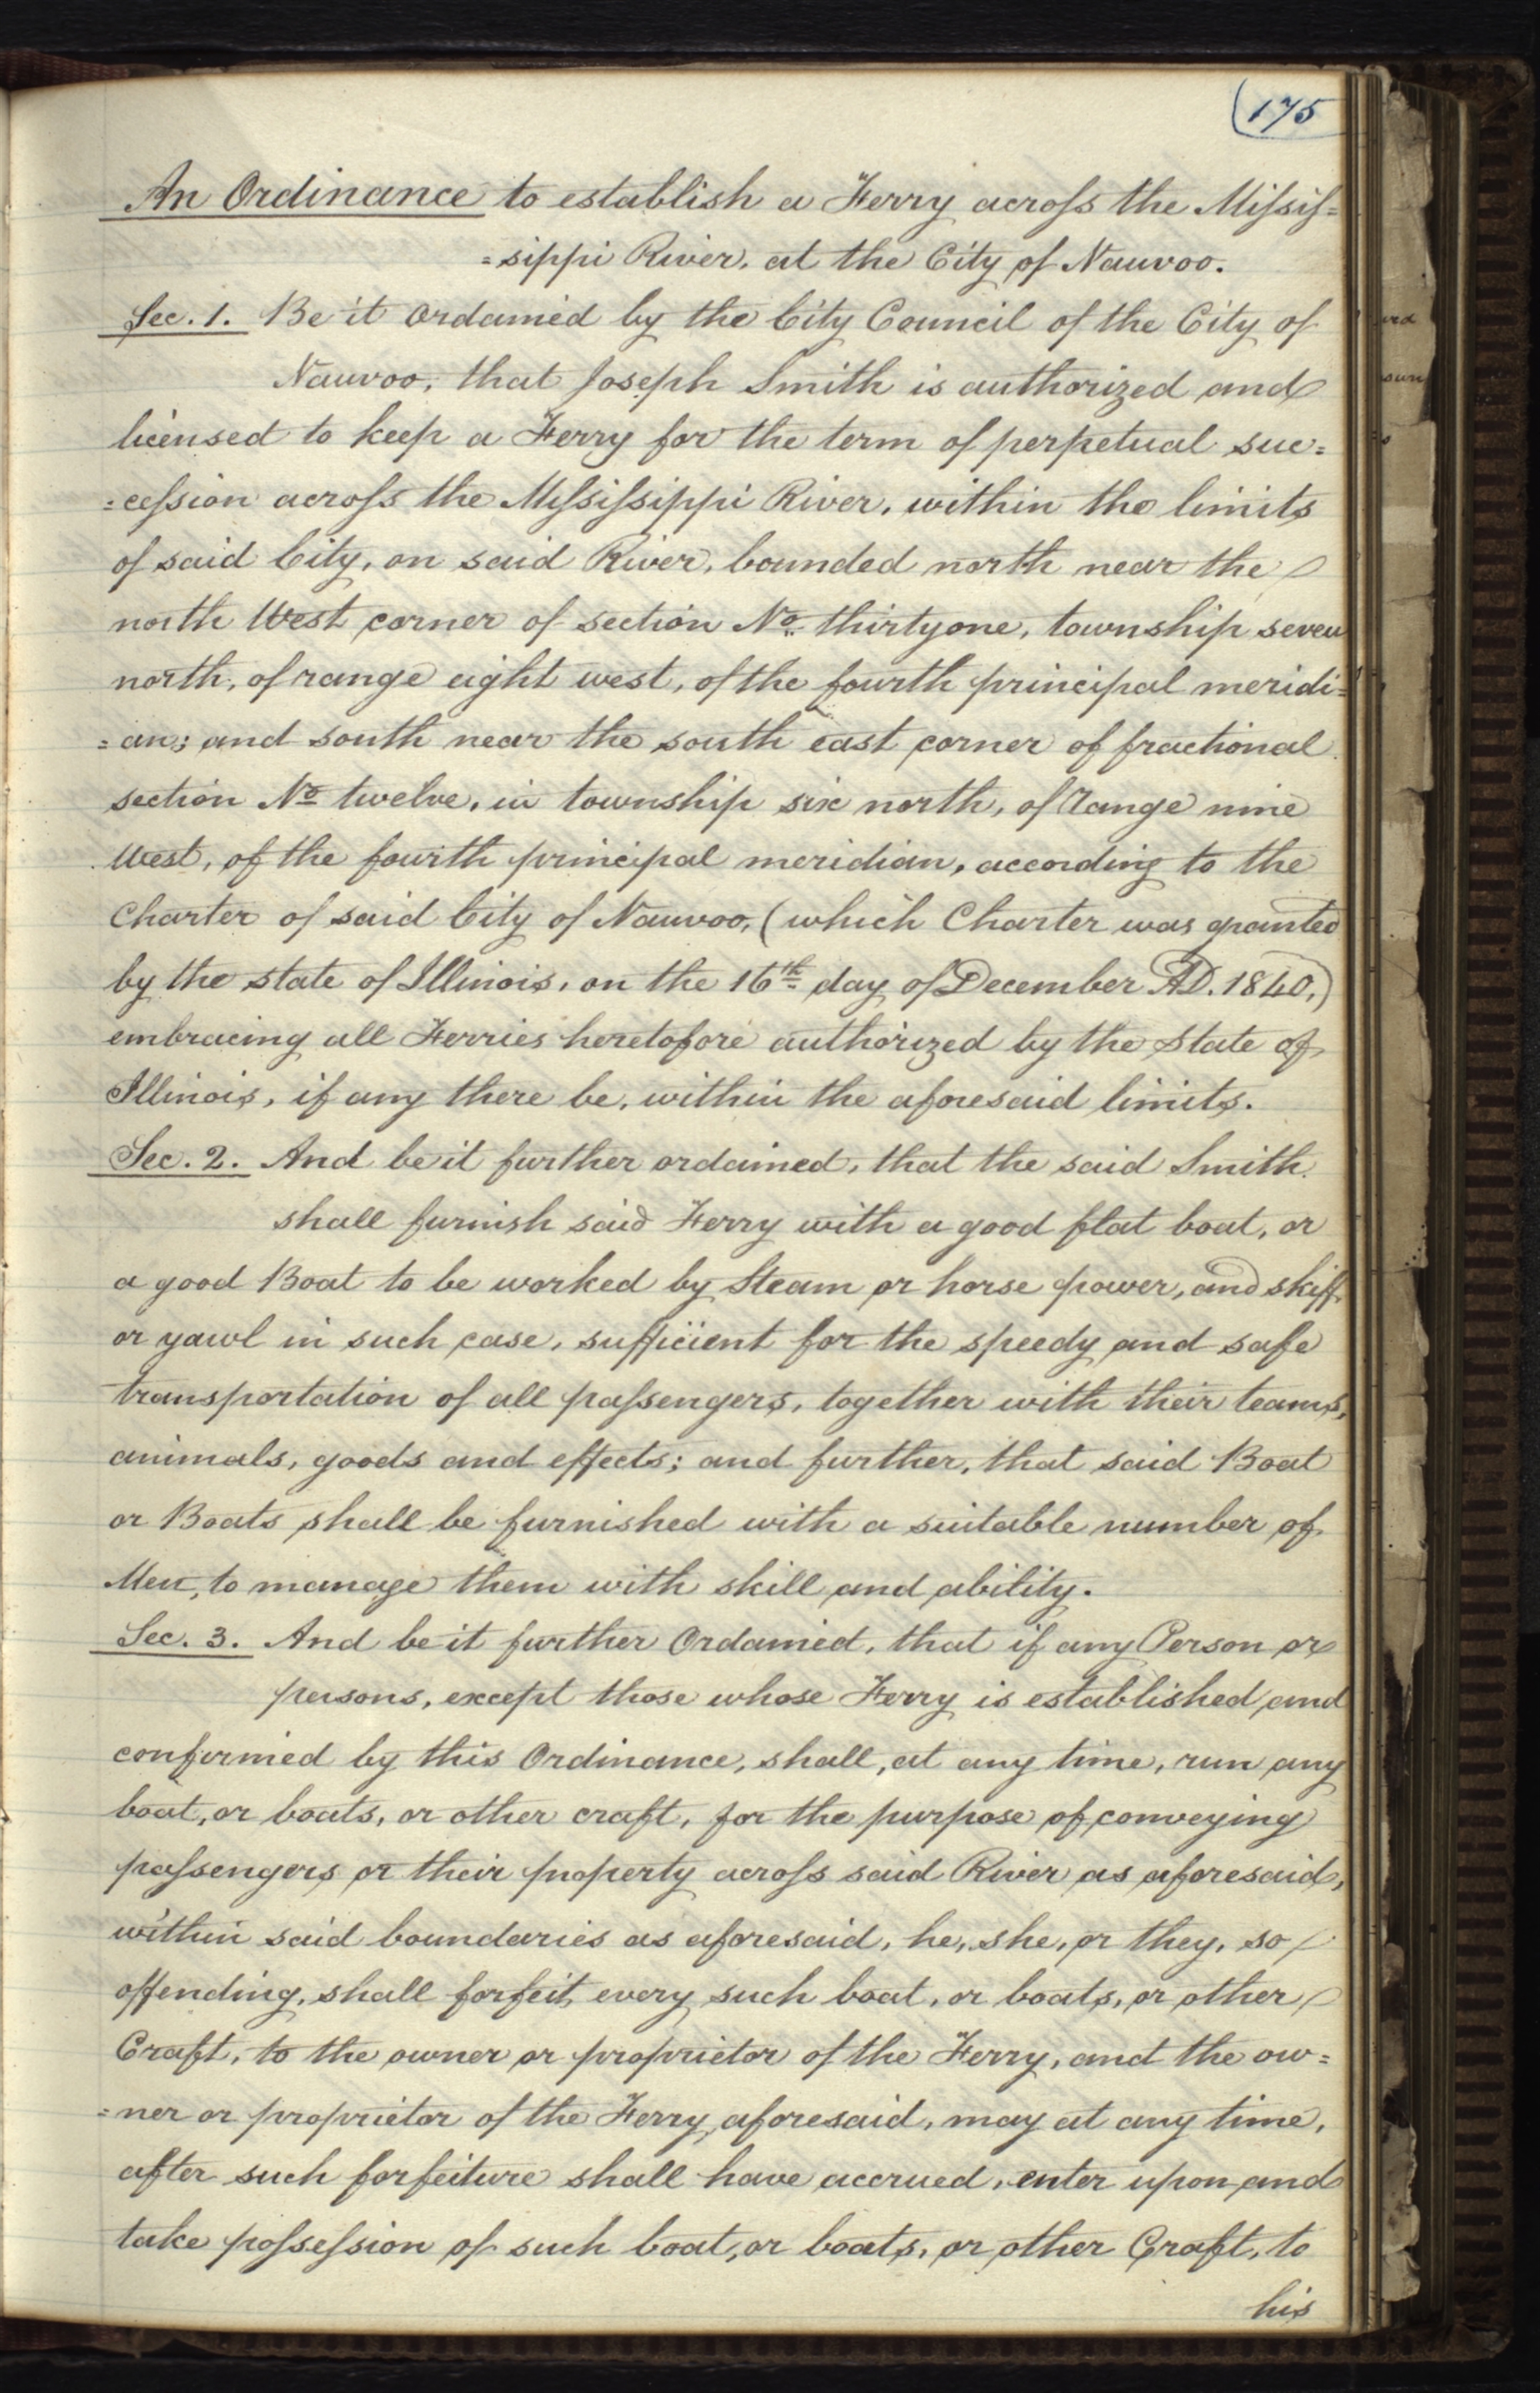 175
An Ordinance to establish a Ferry across the Missis=
=sippi River, at the City of Nauvoo.
Sec. 1. Be it Ordained by the City Council of the City of
Nauvoo, that Joseph Smith is authorized and
licensed to keep a Ferry for the term of perpetual suc=
=cession across the Mississippi River, within the limits
of said City, on said River, bounded north near the
north West corner of section No. thirtyone, township seven
north, of range eight west, of the fourth principal meridi=
=an; and south near the south east corner of fractional
section No twelve, in township six north, of Range nine
West, of the fourth principal meridian, according to the
Charter of said City of Nauvoo, (which Charter was granted
by the state of Illinois, on the 16th day of December A.D. 1840,)
embracing all Ferries heretofore authorized by the State of
Illinois, if any there be, within the aforesaid limits.
Sec. 2. And be it further ordained, that the said Smith
shall furnish said Ferry with a good flat boat, or
a good Boat to be worked by Steam or horse power, and skiff
or yawl in such case, sufficient for the speedy and safe
transportation of all passengers, together with their teams,
animals, goods and effects; and further, that said Boat
or Boats shall be furnished with a suitable number of
Men, to manage them with skill and ability.
Sec. 3. And be it further Ordained, that if any Person or
persons, except those whose Ferry is established and
confirmed by this Ordinance, shall, at any time, run any
boat, or boats, or other craft, for the purpose of conveying
passengers or their property across said River as aforesaid,
within said boundaries as aforesaid, he, she, or they, so
offending, shall forfeit every such boat, or boats, or other
Craft, to the owner or proprietor of the Ferry, and the ow=
=ner or proprietor of the Ferry aforesaid, may at any time,
after such forfeiture shall have accrued, enter upon and
take possession of such boat, or boats, or other Craft, to
his